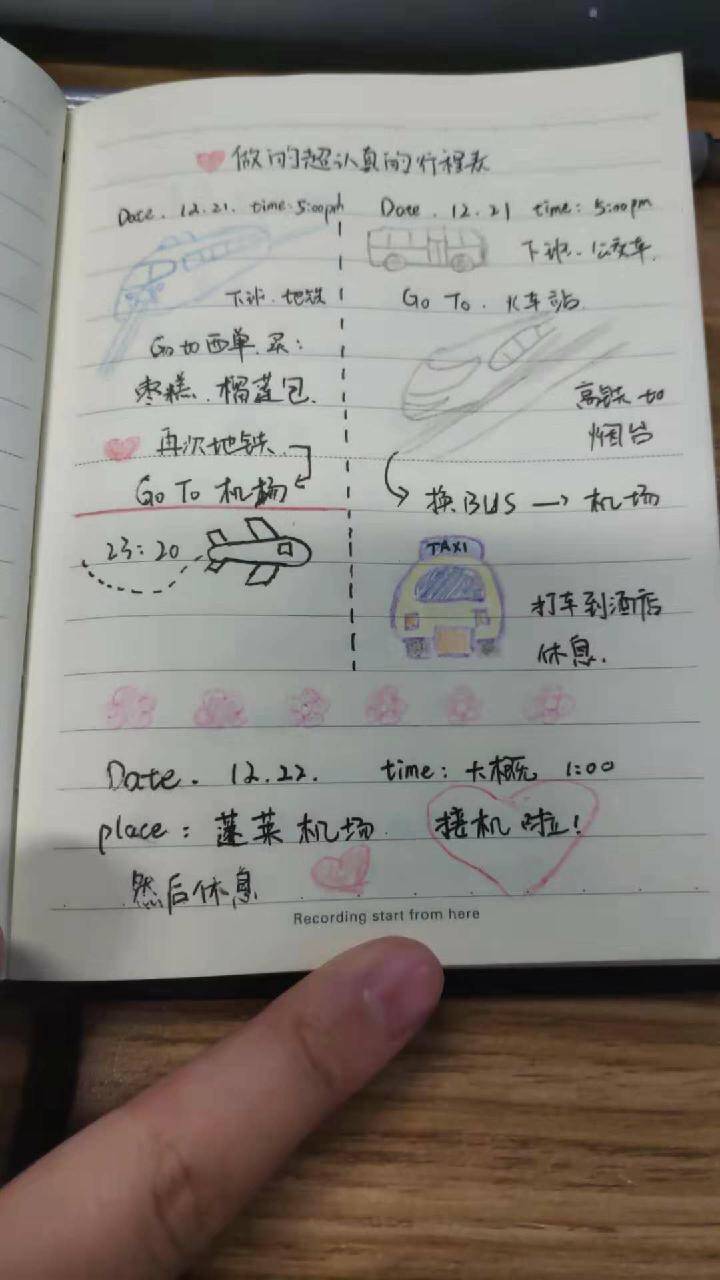 做的超认真的行程表
Date. 12.21. time: 5:00pm
下班. 地铁
Go to 西单. 买:
枣糕. 榴莲包.
再次地铁.
Go To 机场
23:20
Date. 12.21 time: 5:00pm
下班. 公交车.
Go To. 火车站.
高铁 to
烟台
换BUS → 机场
TAXI
打车到酒店
休息.
Date. 12.22. time: 大概 1:00
place: 蓬莱机场. 接机啦!
然后休息
Recording start from here